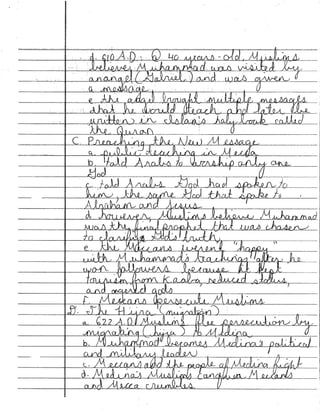 d. 610 A.D.: @ 40 years-old, Muslims
believe Muhammad was visited by
an angel (Gabriel) and was given
a message
e the angel brought multiple messages
that he would teach and later be
written in Islam's holy book called
the Quran
C. Preaching the New Message
a. public teaching in Mecca
b. told Arabs to worship only one
God
c. told Arabs God had spoken to
him, the same God that spoke to
Abraham and Jesus
d. however, Muslims believe Muhammad
was the final prophet that was chosen
to clarify God's truth
e. the Meccans weren't "happy"
with Muhammad's teachings after he
won followers because it kept
tourism from Kaaba, reduced status,
and angered gods
f. Meccans persecute Muslims
D. The Hijra (migration)
a. 622 A.D. Muslims flee persecution by
migrating (hijra) to Medina
b. Muhammad becomes Medina's political
and military leader
c. Meccans and the people of Medina fight
d. Medina's Muslims conquer Meccans
and Mecca crumbles